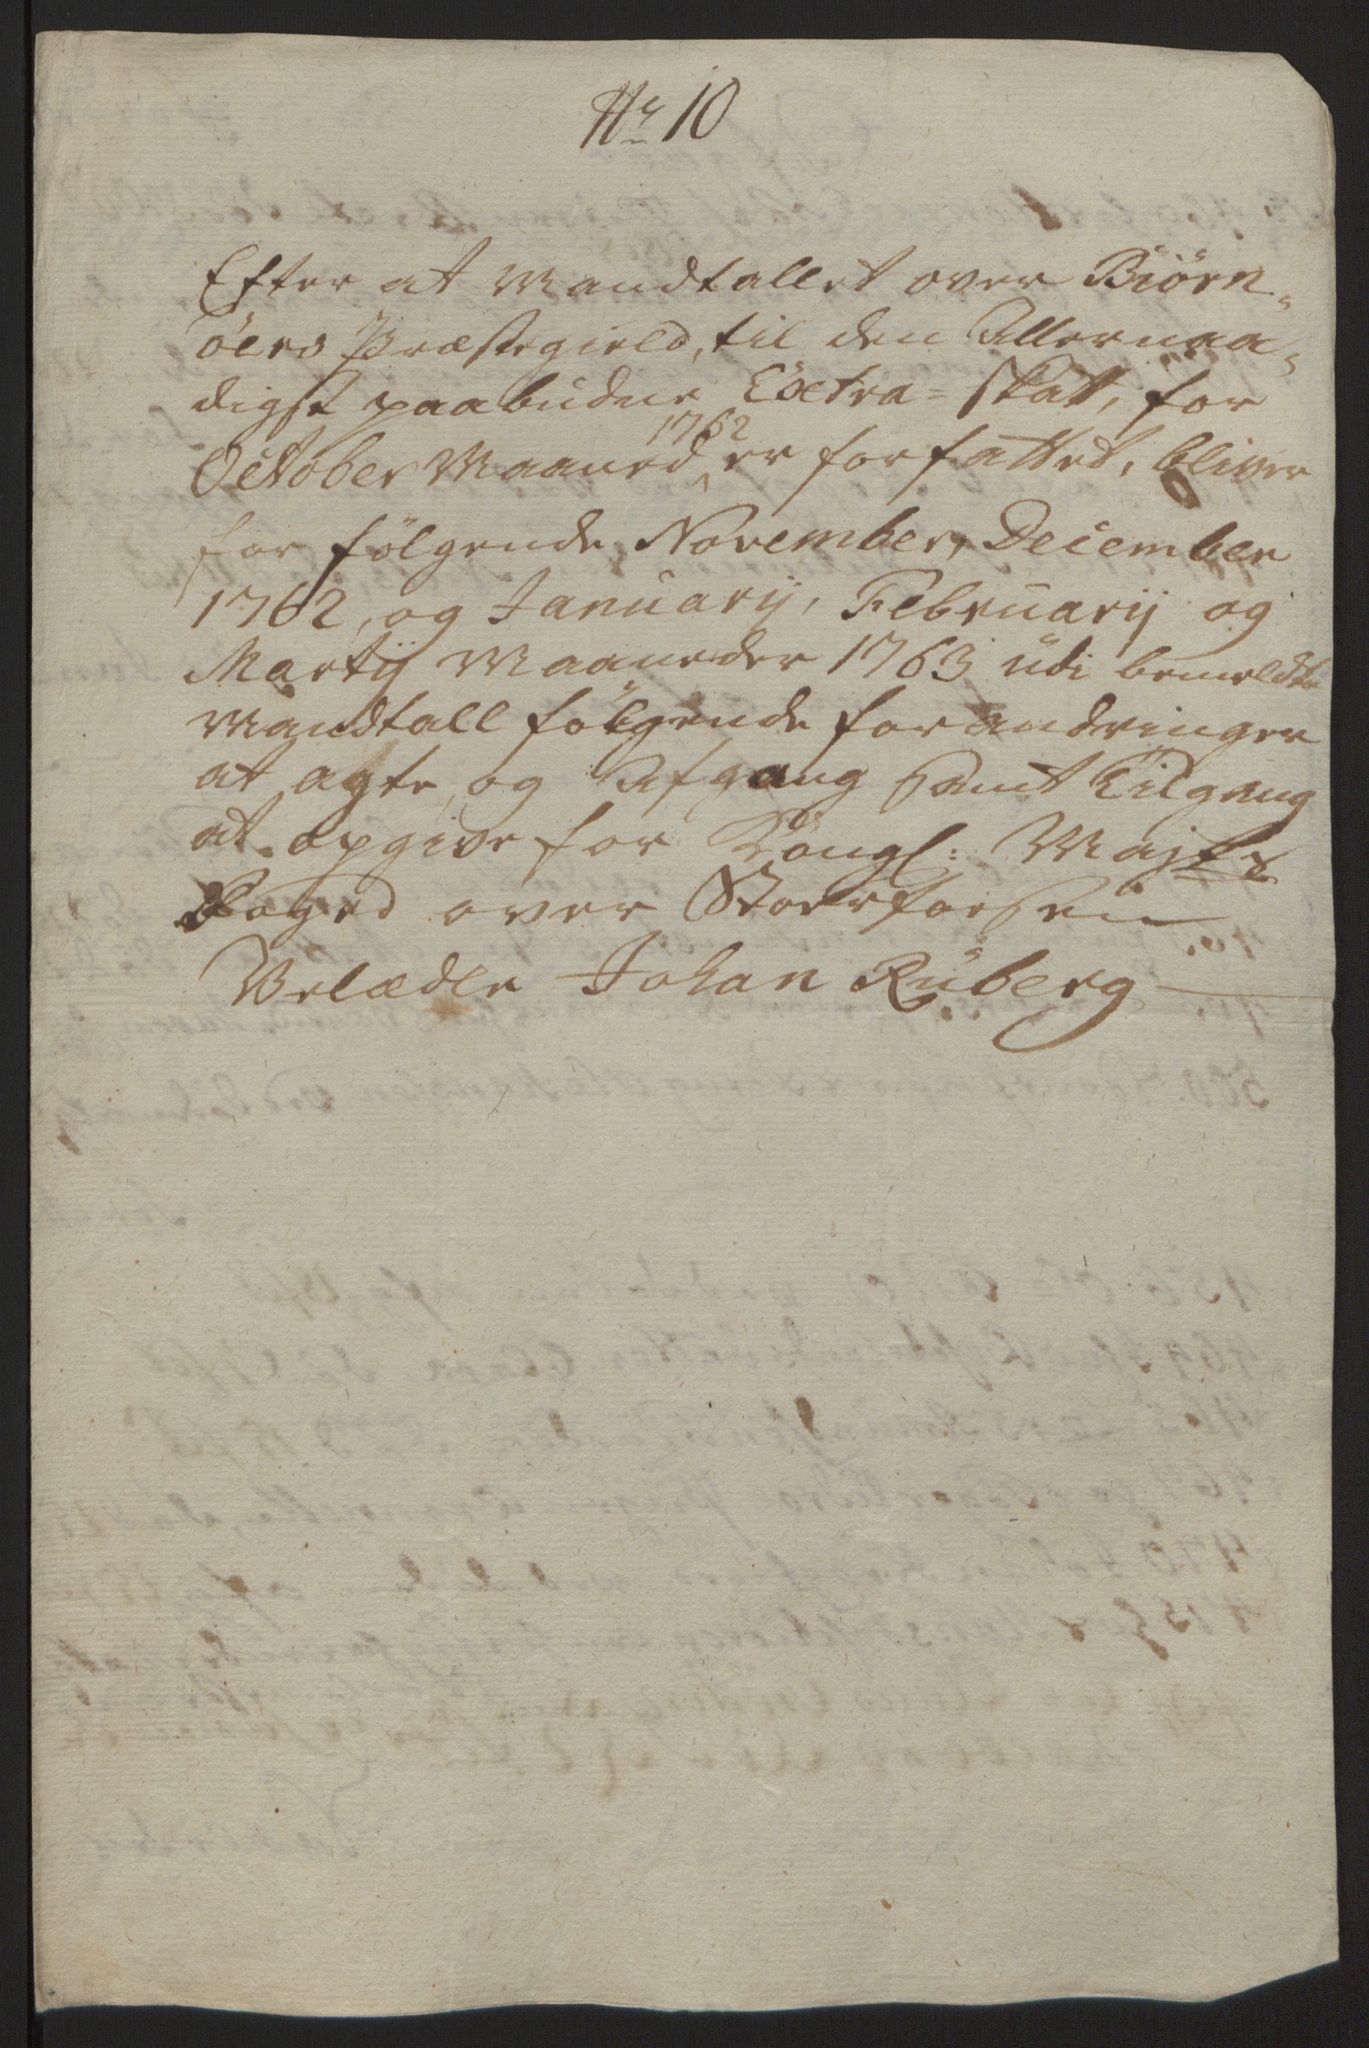 Nr 10
Efter at Mandtallet over Biörn-
öers Præstegield, til den Allernaa-
digst paabudne Extra-Skatt, for
October Maaned 1762 er forfattet, bliver
for fölgende November, December
1762, og Januarij, Februarij og
Martij Maaneder 1763 udi bemeldte
Mandtall fölgende forandringer
at agte, og Afgang samt Tilgang
at opgive for Kongl: Majts
Foged over Stoerfosen
Velædle Johan Ruberg